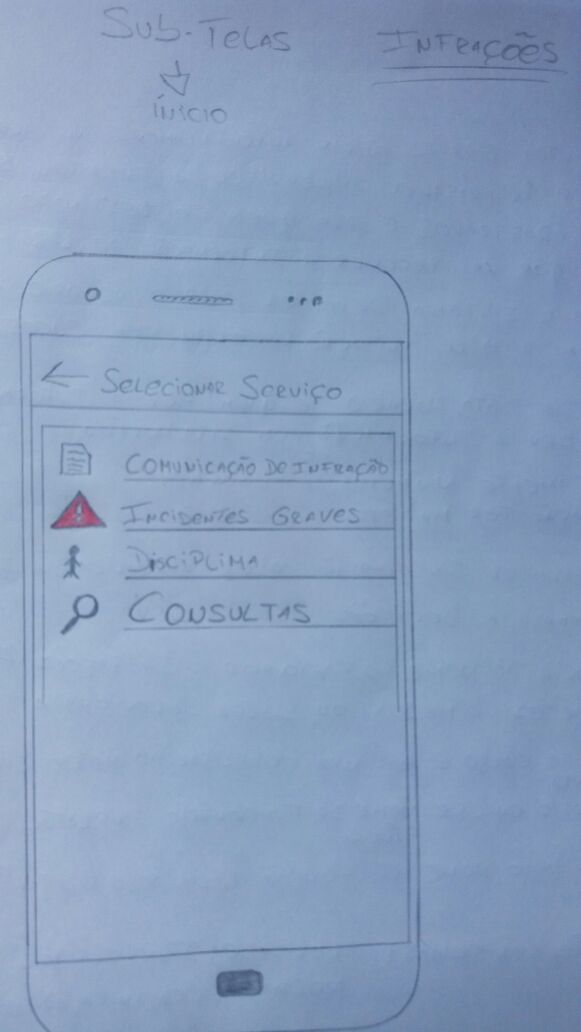 SUB-TELAS
INÍCIO
INFRAÇÕES
SELECIONAR SERVIÇO
COMUNICAÇÃO DE INFRAÇÃO
INCIDENTES GRAVES
DISCIPLINA
CONSULTAS